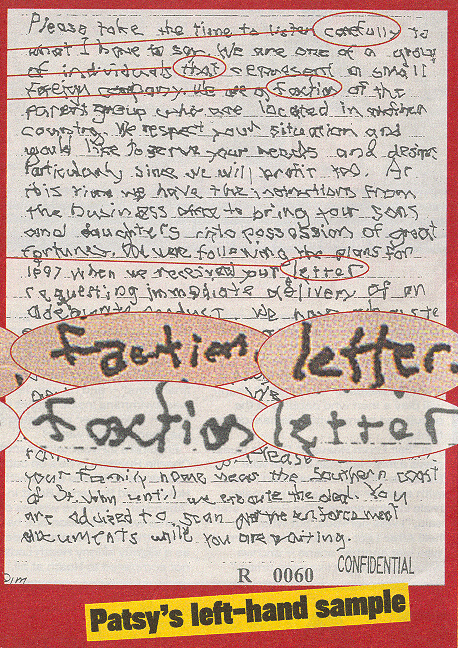 Please take the time to listen carefully to
what I have to say. We are one of a group
of individuals that represent a small
foreign company. We are a faction of the
parent group who are located in another
country. We respect your situation and
would like to serve your needs and desires
particularly since we will profit too. At
this time we have the instructions from
the business office to bring your sons
and daughters into possession of great
fortunes. We were following the plans for
1997 when we received your letter
requesting immediate delivery of an
product. We have
faction letter.
faction letter
We
Please
your family home near the Southern coast
of St. John until we execute the deal. You
are advised to scan
documents while you are waiting.
CONFIDENTIAL
R 0060
Patsy's left-hand sample